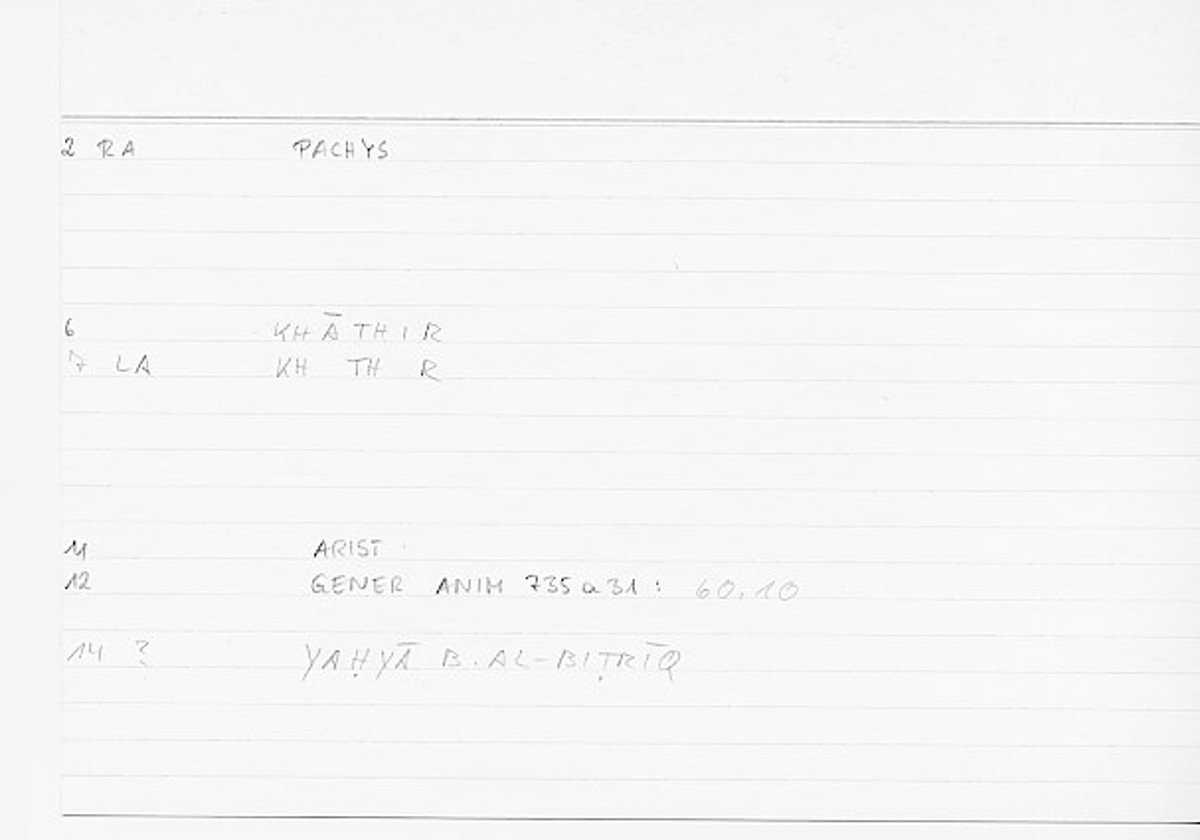 2 RA PACHYS
6 KHĀTHIR
7 LA KH TH R
11 ARIST.
12 GENER ANIM 735 a 31 : 60,10
14 ? YAḤYĀ B. AL-BIṬRĪQ